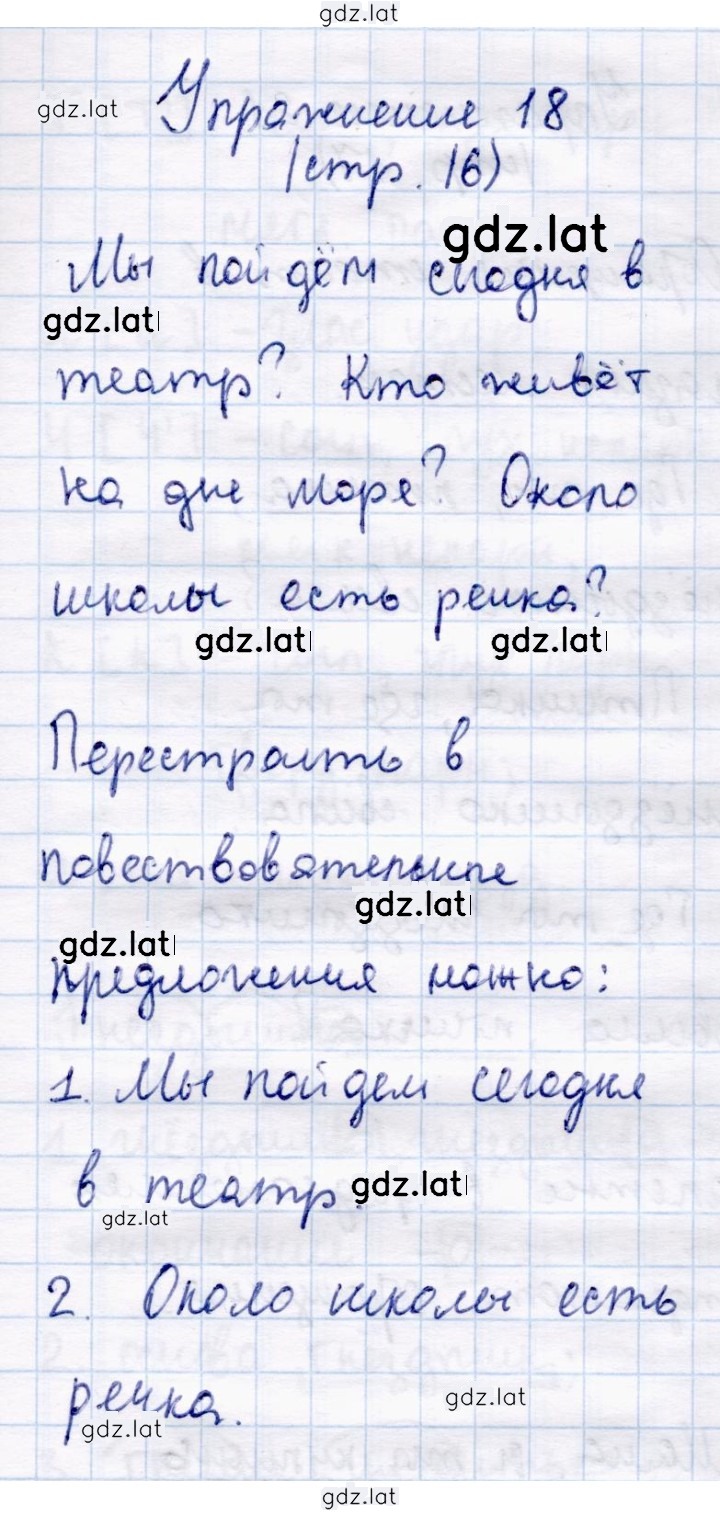 gdz.lat
gdz.lat
Упражнение 18
(стр. 16)
gdz.lat
Мы пойдём сегодня в
gdz.lat
театр? Кто живёт
на дне моря? Около
школы есть речка?
gdz.lat gdz.lat
Перестроить в
повествовательные
gdz.lat
gdz.lat
предложения можно:
1. Мы пойдем сегодня
в театр.
gdz.lat
gdz.lat
2. Около школы есть
речка.
gdz.lat
gdz.lat
gdz.lat